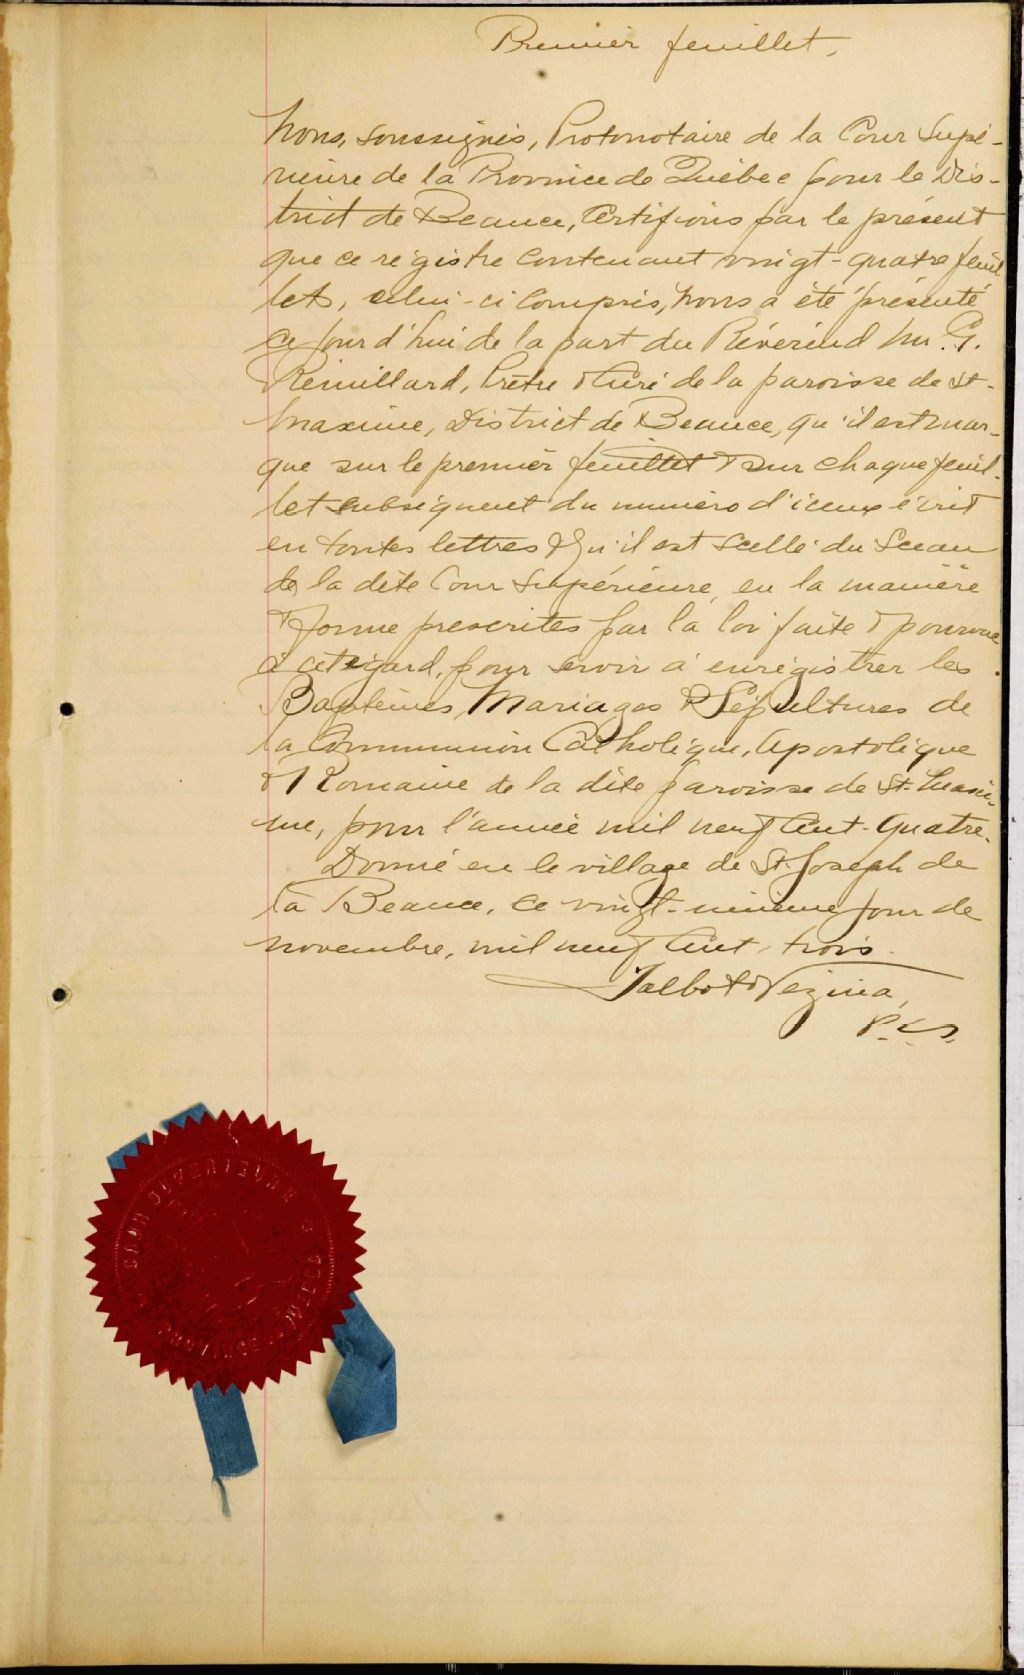 Premier feuillet.
Nous, soussignés, Protonotaire de la Cour Supé-
rieure de la Province de Québec pour le Dis-
trict de Beauce, Certifions par le présent
que ce régistre contenant vingt-quatre feuil
lets, celui-ci compris, nous a été présenté
ce jour d'hui de la part du Révérend Mr. G.
Rémillard, Prêtre & Curé de la paroisse de St-
Maxime, District de Beauce, qu'il est mar-
qué sur le premier feuillet & sur chaque feuil-
let subséquent du numéro d'iceux écrit
en toutes lettres & qu'il est scellé du Sceau
de la dite Cour Supérieure, en la manière
& forme prescrites par la loi faite & pourvue
à cet égard, pour servir à enrégistrer les
Baptêmes, Mariages & Sépultures de
la Communion Catholique, Apostolique
& Romaine de la dite paroisse de St. Maxi-
me, pour l'année mil neuf cent-quatre.
Donné en le village de St. Joseph de
la Beauce, ce vingt- jour de
novembre, mil neuf cent trois.
Talbot & Vézina,
P.C.S.
COUR SUPERIEURE
PROVINCE DE QUEBEC